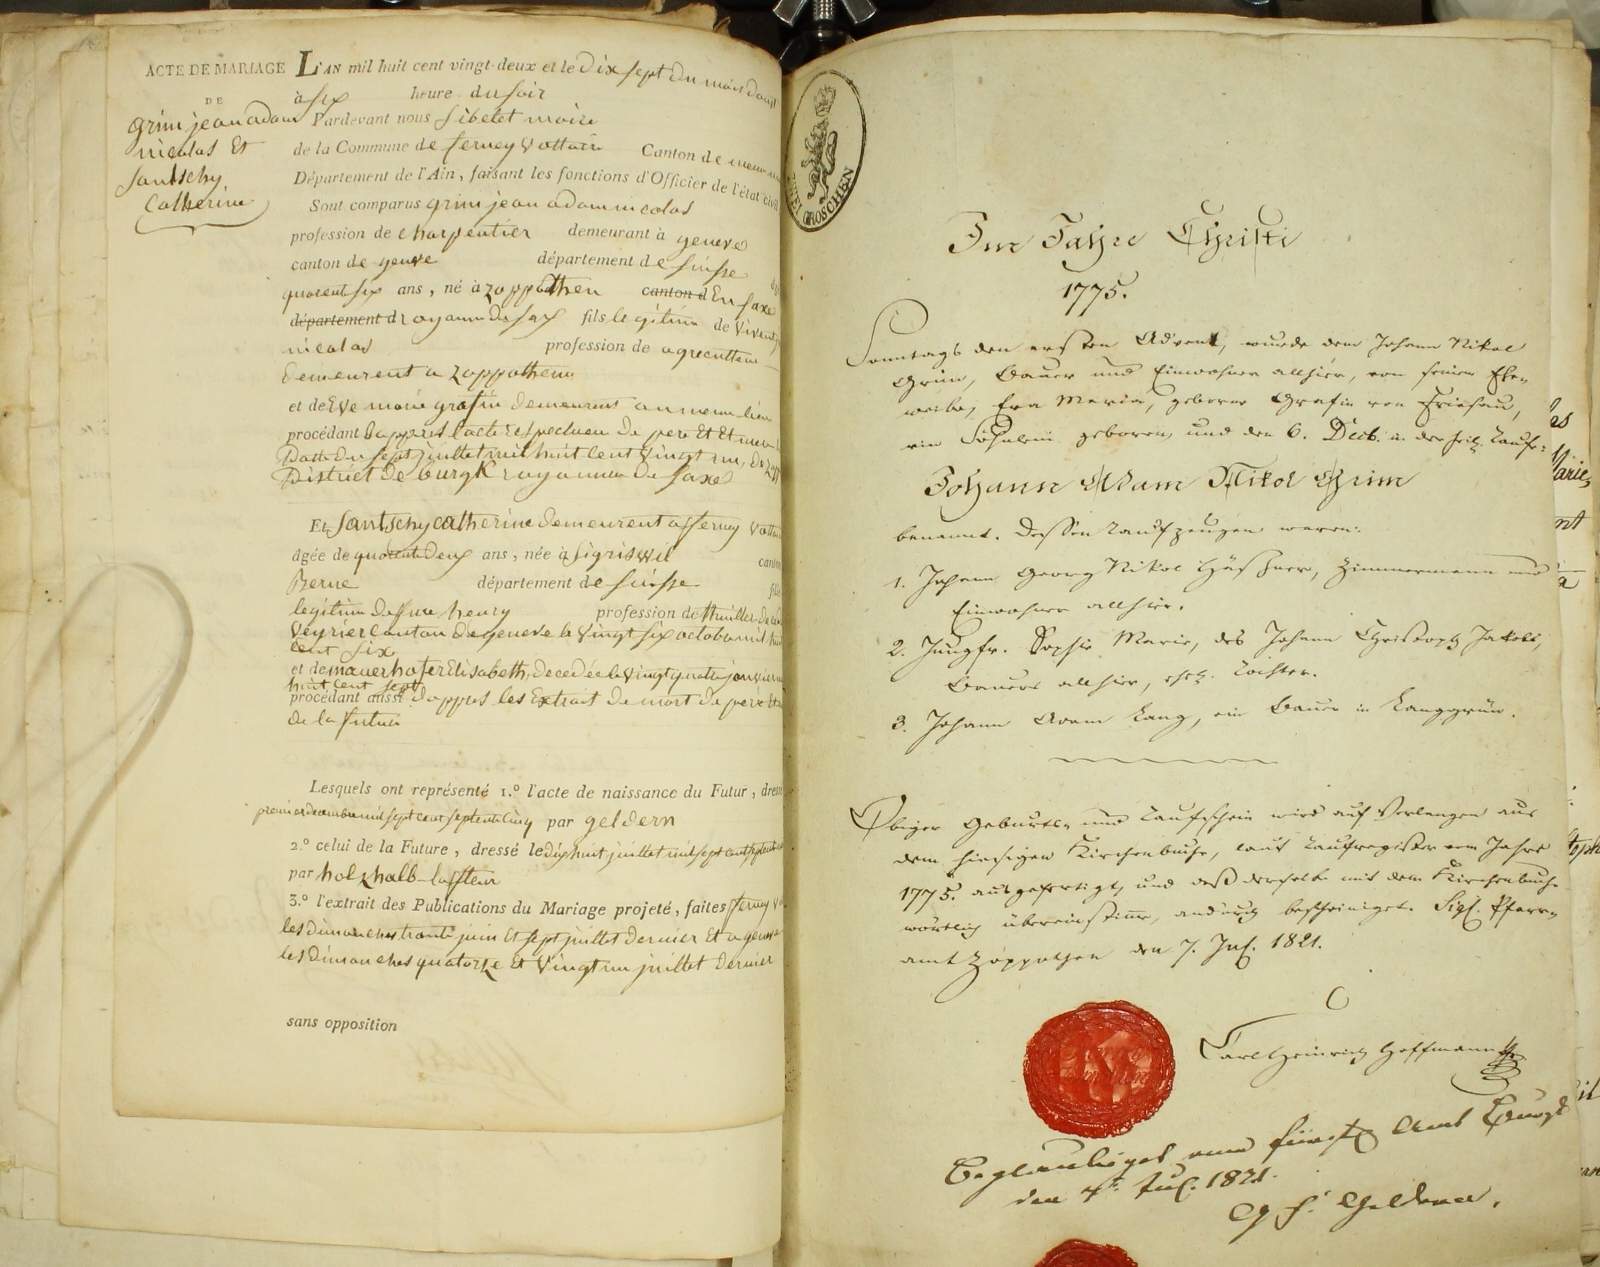 ACTE DE MARIAGE
DE
grim jean adam
nicolas Et
Santschy
Catherine
L'AN mil huit cent vingt-deux et le dix sept du mois daout
à six heure du soir
Pardevant nous sibelet maire
de la Commune de ferney voltaire Canton de
Département de l'Ain, faisant les fonctions d'Officier de l'état civil
Sont comparus grim jean adam nicolas
profession de charpentier demeurant à geneve
canton de geneve département de suisse
quarent six ans, né à zoppothen canton d En saxe
département d royaume de saxe fils legitime de vivent
nicolas profession de agriculteur
demeurent a zoppothen
et de Eve marie grafin demeurent au meme lieu
procédant dappres lacte respectueu de pere Et Et mere
Datté du sept juillet mil huit cent vingt un, de
District de burgk royaume de saxe
Et Santschy catherine demeurent a ferney volta
âgée de quarente deux ans, née à sigriswil canton
Berne département de suisse fil
legitime de feue henry profession de thuillier
veyrier canton de geneve le vingt six octobre mil hui
cent six
et de mauerhofer Elisabeth, decedée le vingt quatre janvier mil
huit cent sept
procédant aussi dappres les Extrait de mort de pere et
de la future
Lesquels ont représenté 1.º l'acte de naissance du Futur, dress
premier decembre mil sept cent septente cinq par geldern
2.º celui de la Future, dressé le dix huit juillet mil sept cent
par holzhalb
3.º l'extrait des Publications du Mariage projeté, faites ferney
les dimanches trante juin Et sept juillet dernier Et a geneve
les dimanches quatorze Et vingt un juillet dernier
sans opposition
GROSCHEN
Im Jahre Christi
1775.
Sonntags den ersten Advent, wurde dem Johann Nikol
Grim, Bauer und Einwohner allhier, von seinem Ehe-
weibe, Eva Maria, geborne Grafin von Friesau,
ein Söhnlein geboren, und den 6. Decb. in der heil. Taufe
Johann Adam Nikol Grim
benannt. Dessen Taufzeugen waren:
1. Johann Georg Nikol Häßner, Zimmermann und
Einwohner allhier.
2. Jungfr. Sophie Marie, des Johann Christoph Jakobi,
Bauers allhier, ehel. Tochter.
3. Johann Adam Lang, ein Bauer in Langgrün.
Obiger Geburts- und Taufschein wird auf Verlangen aus
dem hiesigen Kirchenbuche, laut Taufregister vom Jahre
1775. ausgefertigt, und daß derselbe mit dem Kirchenbuche
wörtlich übereinstimme, andurch bescheiniget. Sigl. Pfarr-
amt Zoppothen den 7. Jul. 1821.
Carl Heinrich Hoffmann
Beglaubiget vom fürstl. Amt Burgk
den 7t. Jul. 1821.
Geldern.